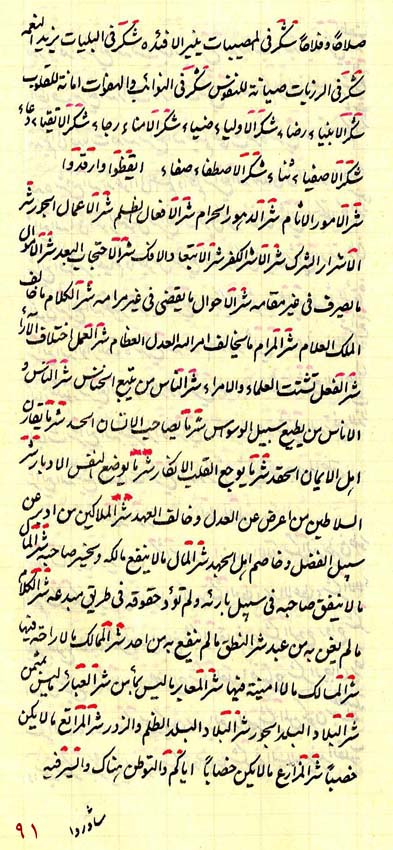 صلاحًا و فلاحًا شكر فی المصیبات ینیر الافئده شكر فی البلیات یزید النعمه
شكر فی الرزیات صیانة للنفوس شكر فی النوائب و الهفوات امانة للقلوب
شكر الانبیاء رضاء شكر الاولیاء ضیاء شكر الامناء رجاء شكر الاتقیاء دعاء
شكر الاصفیاء ثناء شكر الاصطفاء صفاء ایقظوا و ارقدوا
شر الامور الاثام شر الدهور الحرام شر الافعال الظلم شر الاعمال الجور شر
الاسرار الشرك شر الاثار الكفر شر الابتعاد الافك شر الاحتجاب البعد شر الاموال
ما یصرف فی غیر مقامه شر الاحوال ما یقضی فی غیر مرامه شر الكلام ما خالف
الملك العلام شر المرام ما یخالف امر الله العدل العظام شر العمل اختلاف الآراء
شر الفعل تشتت العلماء و الامراء شر الناس من یتبع الخناس شر الناس و
الاناس من یطیع سبیل الوسواس شر ما یصاحب الانسان الحسد شر ما یقارن
اهل الایمان الحقد شر ما یوجع القلب الانكار شر ما یوضع النفس الادبار شر
السلاطین من اعرض عن العدل و خالف العهد شر الملاكین من ادبر عن
سبیل الفضل و خاصم اهل الجهد شر المال ما لا ینفع مالكه و یخیر صاحبه شر المال
ما لا ینفق صاحبه فی سبیل بارئه و لم تؤد حقوقه فی طریق مبدعه شر الكلام
ما لم یغن به من عبد شر النطق ما لم ینتفع به من احد شر الممالك ما لا راحة فیها
شر المسالك ما لا امینة فیها شر المعابر ما لیس بمأمن شر العبائر لیس بمثمن
شر البلاد البلد الجور شر البلاد البلد الظلم و الزور شر المراتع ما لا یكن
خصبًا شر المزارع ما لا یكن خصابًا ایاكم و التوطن هناك و السیر فیه
شاوروا
۹۱